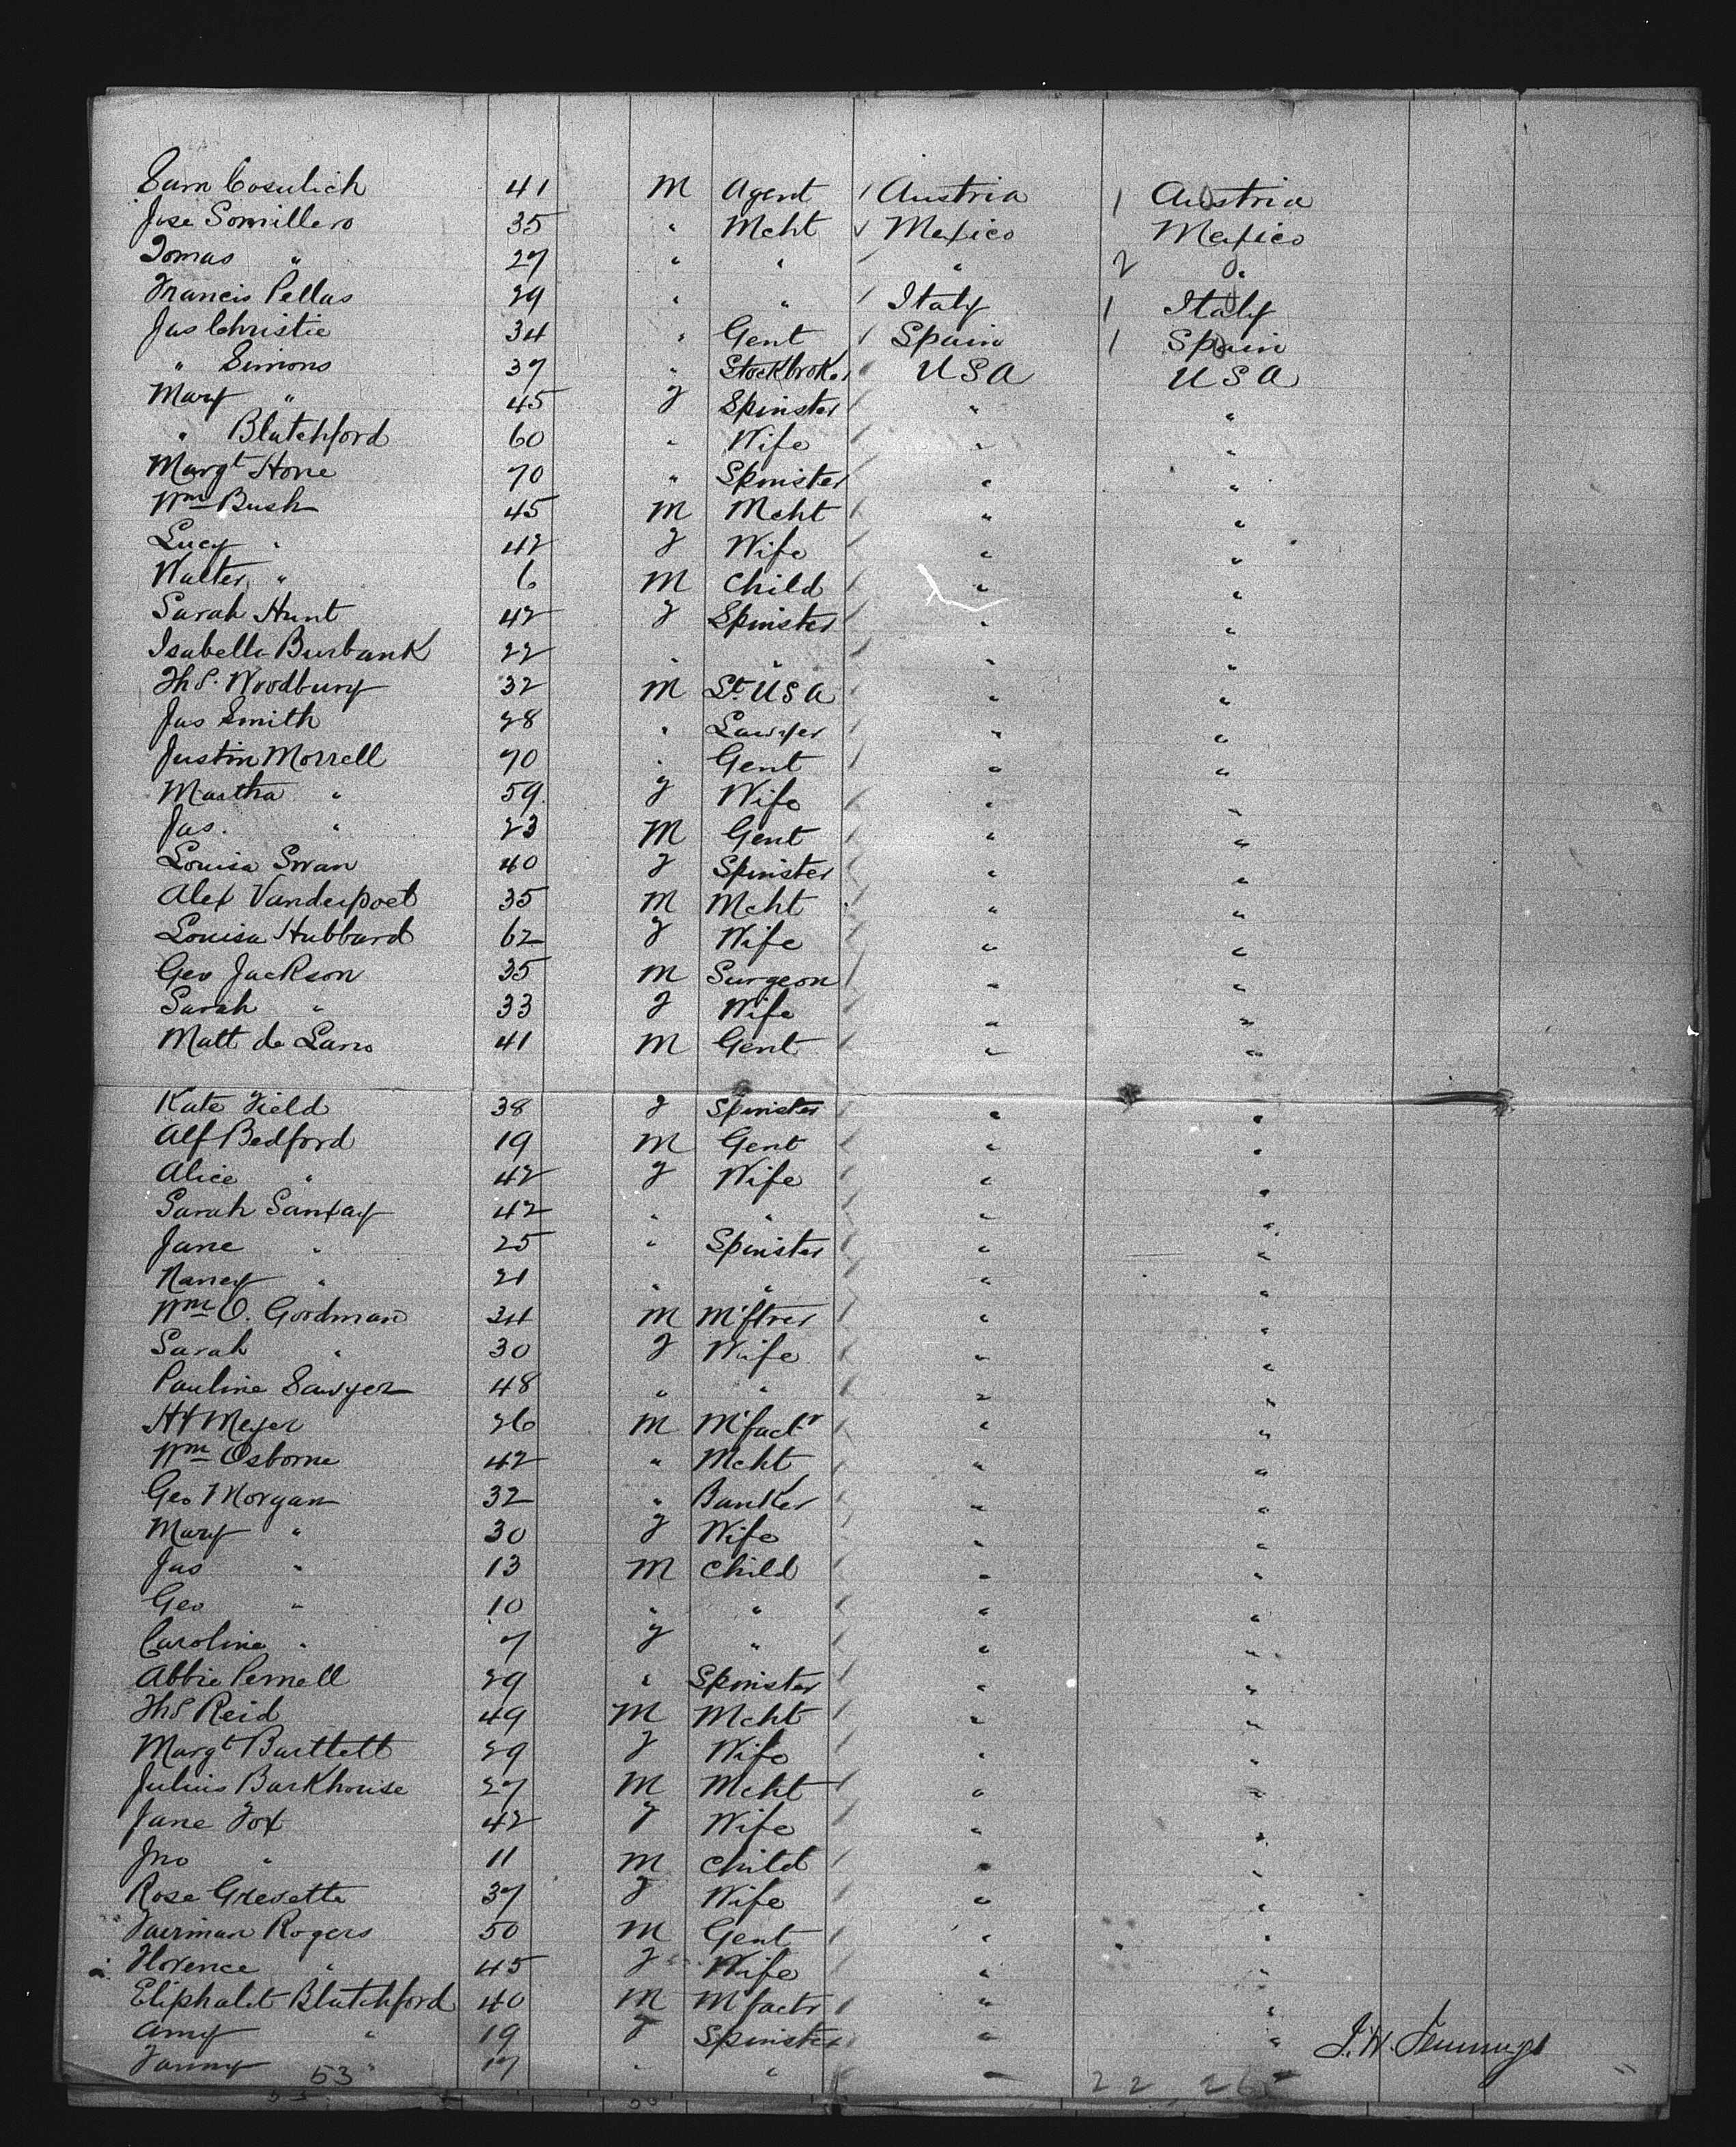 Sam Cosulich 41 M Agent / Austria 1 Austria
Jose Somillero 35 " Mcht √ Mexico Mexico
Tomas " 27 " " / " 2 "
Francis Pellas 29 " " / Italy 1 Italy
Jas Christie 34 " Gent / Spain 1 Spain
" Simons 37 " Stockbroker / USA USA
Mary " 45 F Spinster / " "
" Blatchford 60 " Wife / " "
Margt Hone 70 " Spinster / " "
Wm Bush 45 M Mcht / " "
Lucy " 42 F Wife / " "
Walter " 6 M Child / " "
Sarah Hunt 42 F Spinster / " "
Isabella Burbank 22 " " / " "
Ths. Woodbury 32 M Lt USA / " "
Jas Smith 28 " Lawyer / " "
Justin Morrell 70 " Gent / " "
Martha " 59 F Wife / " "
Jas. " 23 M Gent / " "
Louisa Swan 40 F Spinster / " "
Alex Vanderpoel 35 M Mcht / " "
Louisa Hubbard 62 F Wife / " "
Geo Jackson 35 M Surgeon / " "
Sarah " 33 F Wife / " "
Matt de Lano 41 M Gent / " "
Kate Field 38 F Spinster / " "
Alf Bedford 19 M Gent / " "
Alice " 42 F Wife / " "
Sarah Sanxay 42 " " / " "
Jane " 25 " Spinster / " "
Nancy " 21 " " / " "
Wm O. Goodman 34 M M'ftrer / " "
Sarah " 30 F Wife / " "
Pauline Sawyer 48 " " / " "
Hy Meyer 26 M M'factr / " "
Wm Osborne 42 " Mcht / " "
Geo Morgan 32 " Banker / " "
Mary " 30 F Wife / " "
Jas " 13 M Child / " "
Geo " 10 " " / " "
Caroline " 7 F " / " "
Abbie Pernell 29 " Spinster / " "
Ths Reid 49 M Mcht / " "
Margt Bartlett 29 F Wife / " "
Julius Barkhouse 27 M Mcht / " "
Jane Fox 42 F Wife / " "
Jno " 11 M Child / " "
Rose Grevette 37 F Wife / " "
Fairman Rogers 50 M Gent / " "
Florence " 45 F Wife / " "
Eliphalet Blatchford 40 M Mfactr / " "
Amy " 19 F Spinster / " " J. W. Jennings
Fanny " 17 " " "
53 22 265